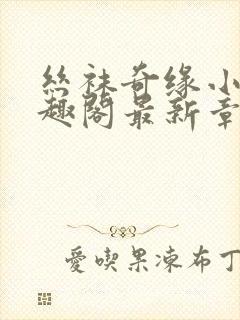 丝袜奇缘小
趣阁最新章
愛喫果凍布丁